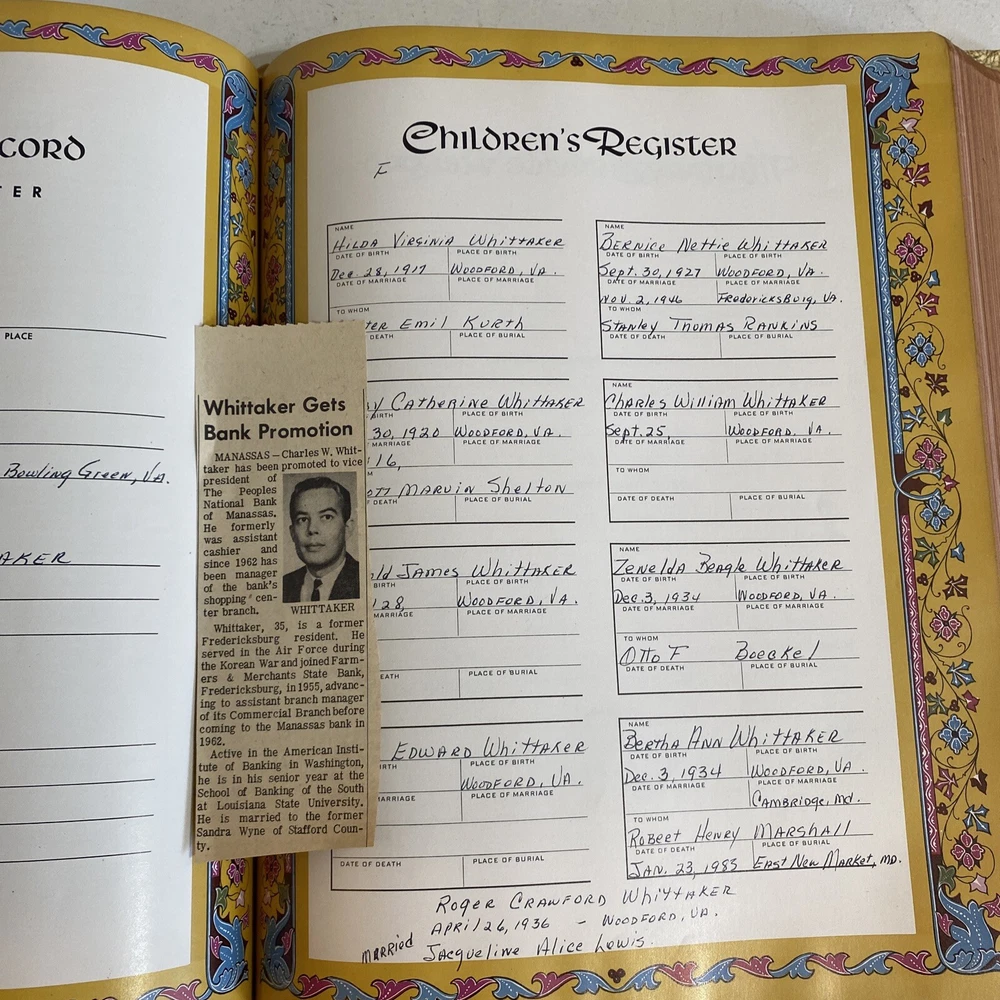 CORD
TER
PLACE
Bowling Green, VA.
AKER
Whittaker Gets
Bank Promotion
MANASSAS — Charles W. Whit-
taker has been promoted to vice
president of
The Peoples
National Bank
of Manassas.
He formerly
was assistant
cashier and
since 1962 has
been manager
of the bank's
shopping cen-
ter branch.
WHITTAKER
Whittaker, 35, is a former
Fredericksburg resident. He
served in the Air Force during
the Korean War and joined Farm-
ers & Merchants State Bank,
Fredericksburg, in 1955, advanc-
ing to assistant branch manager
of its Commercial Branch before
coming to the Manassas bank in
1962.
Active in the American Insti-
tute of Banking in Washington,
he is in his senior year at the
School of Banking of the South
at Louisiana State University.
He is married to the former
Sandra Wyne of Stafford Coun-
ty.
Children's Register
F
NAME
Hilda Virginia Whittaker
DATE OF BIRTH PLACE OF BIRTH
Dec. 28, 1917 Woodford, VA.
DATE OF MARRIAGE PLACE OF MARRIAGE
TO WHOM
ter Emil Kurth
OF DEATH PLACE OF BURIAL
y Catherine Whittaker
BIRTH PLACE OF BIRTH
30, 1920 Woodford, VA.
MARRIAGE PLACE OF MARRIAGE
16,
OM
ott Marvin Shelton
F DEATH PLACE OF BURIAL
ld James Whittaker
BIRTH PLACE OF BIRTH
28, Woodford, VA.
MARRIAGE PLACE OF MARRIAGE
DEATH PLACE OF BURIAL
Edward Whittaker
RTH PLACE OF BIRTH
Woodford, VA.
ARRIAGE PLACE OF MARRIAGE
DATE OF DEATH PLACE OF BURIAL
NAME
Bernice Nettie Whittaker
DATE OF BIRTH PLACE OF BIRTH
Sept. 30, 1927 Woodford, VA.
DATE OF MARRIAGE PLACE OF MARRIAGE
Nov. 2, 1946 Fredericksburg, VA.
TO WHOM
Stanley Thomas Rankins
DATE OF DEATH PLACE OF BURIAL
NAME
Charles William Whittaker
DATE OF BIRTH PLACE OF BIRTH
Sept. 25, Woodford, VA.
DATE OF MARRIAGE PLACE OF MARRIAGE
TO WHOM
DATE OF DEATH PLACE OF BURIAL
NAME
Zenelda Beagle Whittaker
DATE OF BIRTH PLACE OF BIRTH
Dec. 3, 1934 Woodford, VA.
DATE OF MARRIAGE PLACE OF MARRIAGE
TO WHOM
Otto F Boeckel
DATE OF DEATH PLACE OF BURIAL
NAME
Bertha Ann Whittaker
DATE OF BIRTH PLACE OF BIRTH
Dec. 3, 1934 Woodford, VA.
DATE OF MARRIAGE PLACE OF MARRIAGE
Cambridge, Md.
TO WHOM
Robert Henry Marshall
DATE OF DEATH PLACE OF BURIAL
Jan. 23, 1985 East New Market, MD.
Roger Crawford Whittaker
April 26, 1936 — Woodford, VA.
married Jacqueline Alice Lewis.